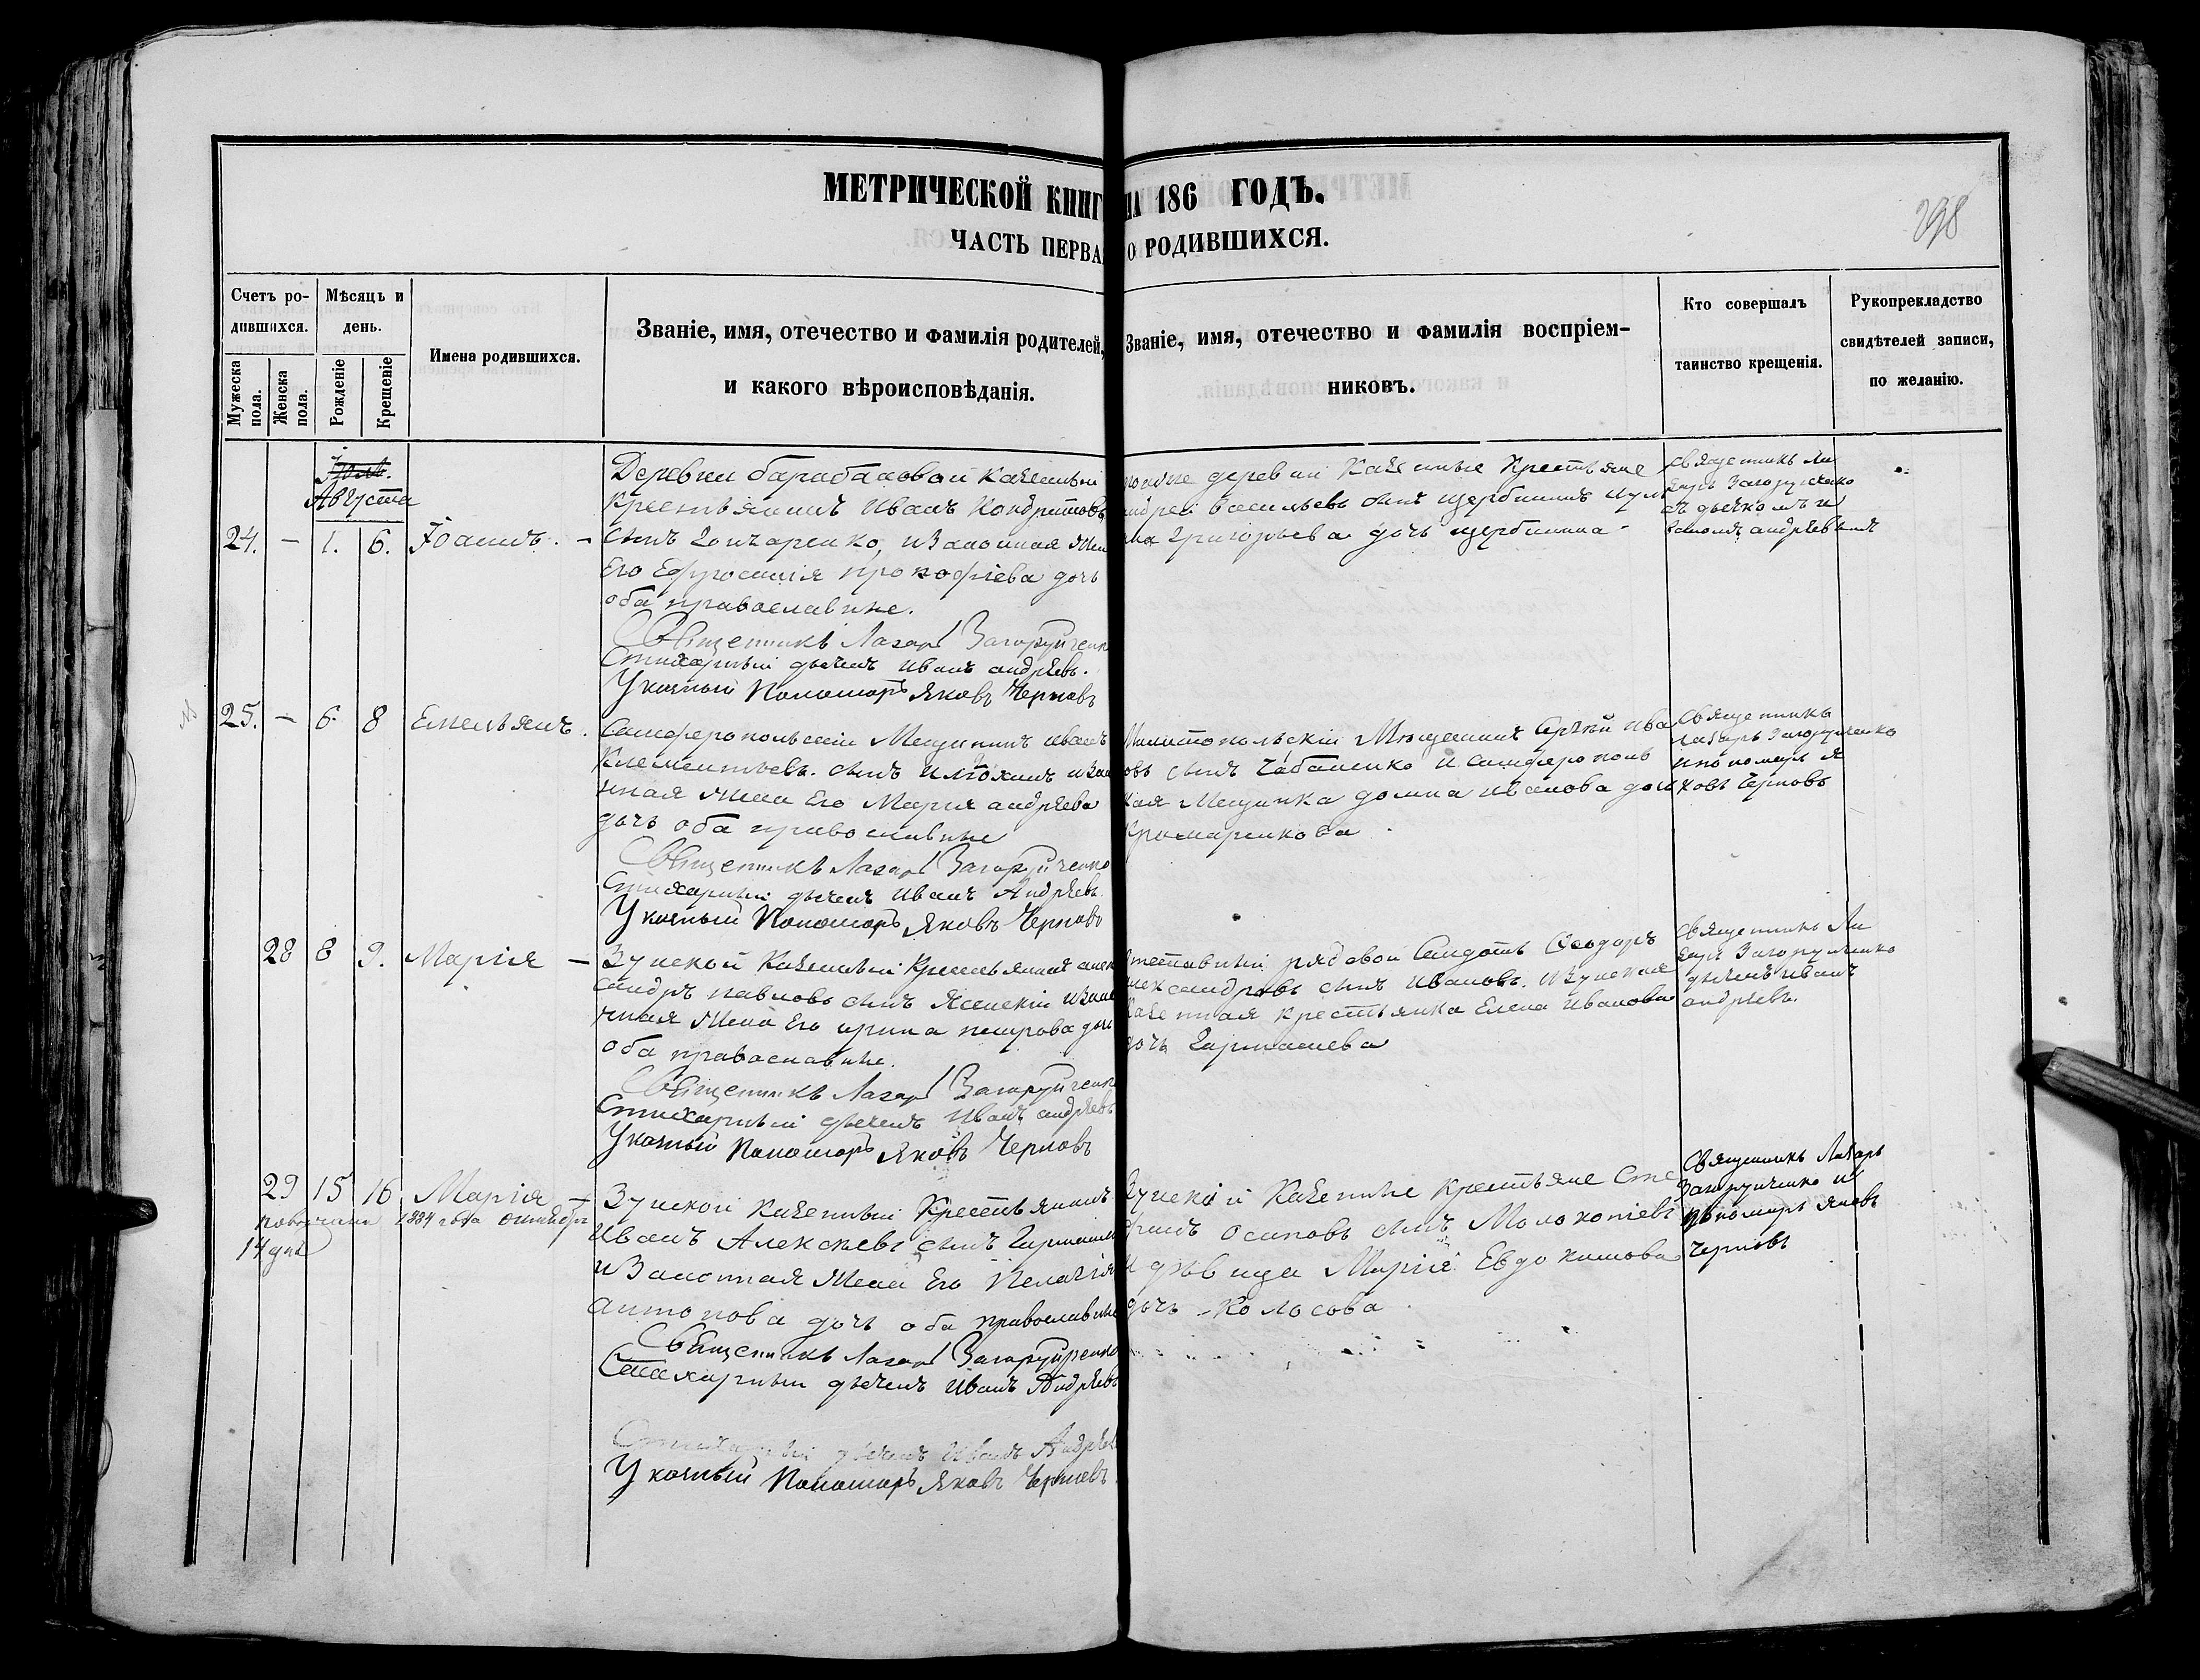 МЕТРИЧЕСКОЙ КНИГ НА 186 ГОДЪ.
ЧАСТЬ ПЕРВА О РОДИВШИХСЯ.
298
Счетъ ро-
дившихся.
Мужеска пола.
Женска пола.
Мѣсяцъ и
день.
Рожденіе
Крещеніе
Имена родившихся.
Званіе, имя, отечество и фамилія родителей,
и какого вѣроисповѣданія.
Званіе, имя, отечество и фамилія воспріем-
никовъ.
Кто совершалъ
таинство крещенія.
Рукоприкладство
свидѣтелей записи,
по желанію.
Августа
24. — 1. 6. Іоаннъ. —
Деревни барабановой Казенный
крестьянинъ Иванъ Кондратовъ
сынъ Гончаренко, и Законная Жен
Его Ефросинія прокофіева дочь
оба православные.
Священникъ Лазарь Загоруйченк
Стихарный дьячекъ Иванъ андрѣевъ.
Указный Пономарь Яковъ Черновъ
тойже деревни Казенные Крестьяне
ндрей васильевъ сынъ щербининъ
Григорьева дочь щербинина
Священникъ Ла
зарь Загоруйченко
съ дьячкомъ и
андрѣевымъ
25. — 6 8 Емельянъ.
Симферопольскій Мещанинъ иванъ
Клементьевъ. сынъ и Зак
нная Жена Его Марія андрѣева
дочь оба православные
Священникъ Лазарь Загоруйченко
Стихарный дьячекъ Иванъ Андрѣевъ
Указный Пономарь Яковъ Черновъ
Мелитопольскій Мещанинъ Сергѣй ива
овъ сынъ Чабаненко и симферополь
кая Мещанка домна иванова доч
Крамаренкова.
Священникъ
Лазарь Загоруйченко
и пономарь Я
ковъ Черновъ
28 8 9. Марія —
Зуйской Казенный Крестьянинъ алек
сандръ павловъ сынъ Ясенскій и Зако
нная Жена Его ирина петрова доч
оба православные.
Священникъ Лазарь Загоруйченк
Стихарный дьячекъ Иванъ андрѣевъ
Указный Пономарь Яковъ Черновъ
тставный рядовой Солдатъ Ѳеодоръ
лександровъ сынъ Ивановъ. и Зуйская
Казенная крестьянка Елена Иванова
дочь Гармашева
Священникъ Ла
зарь Загоруйченко
дьячекъ иванъ
андрѣевъ.
29 15 16 Марія —
1884 года Октября
14 дня
Зуйской Казенный Крестьянинъ
Иванъ Алексѣевъ сынъ Гармаш
и Законная Жена Его Пелагія
антонова дочь оба православные
Священникъ Лазарь Загоруйченко
Стихарный дьячекъ Иванъ Андрѣевъ
Стихарный дьячекъ Иванъ Андрѣев
Указный Пономарь Яковъ Черновъ
Зуйской Казенные крестьяне Сте
фанъ осиповъ сынъ
и дѣвица Марія Евдокимова
дочь Колосова.
Священникъ Лазарь
Загоруйченко и
пономарь Яковъ
Черновъ